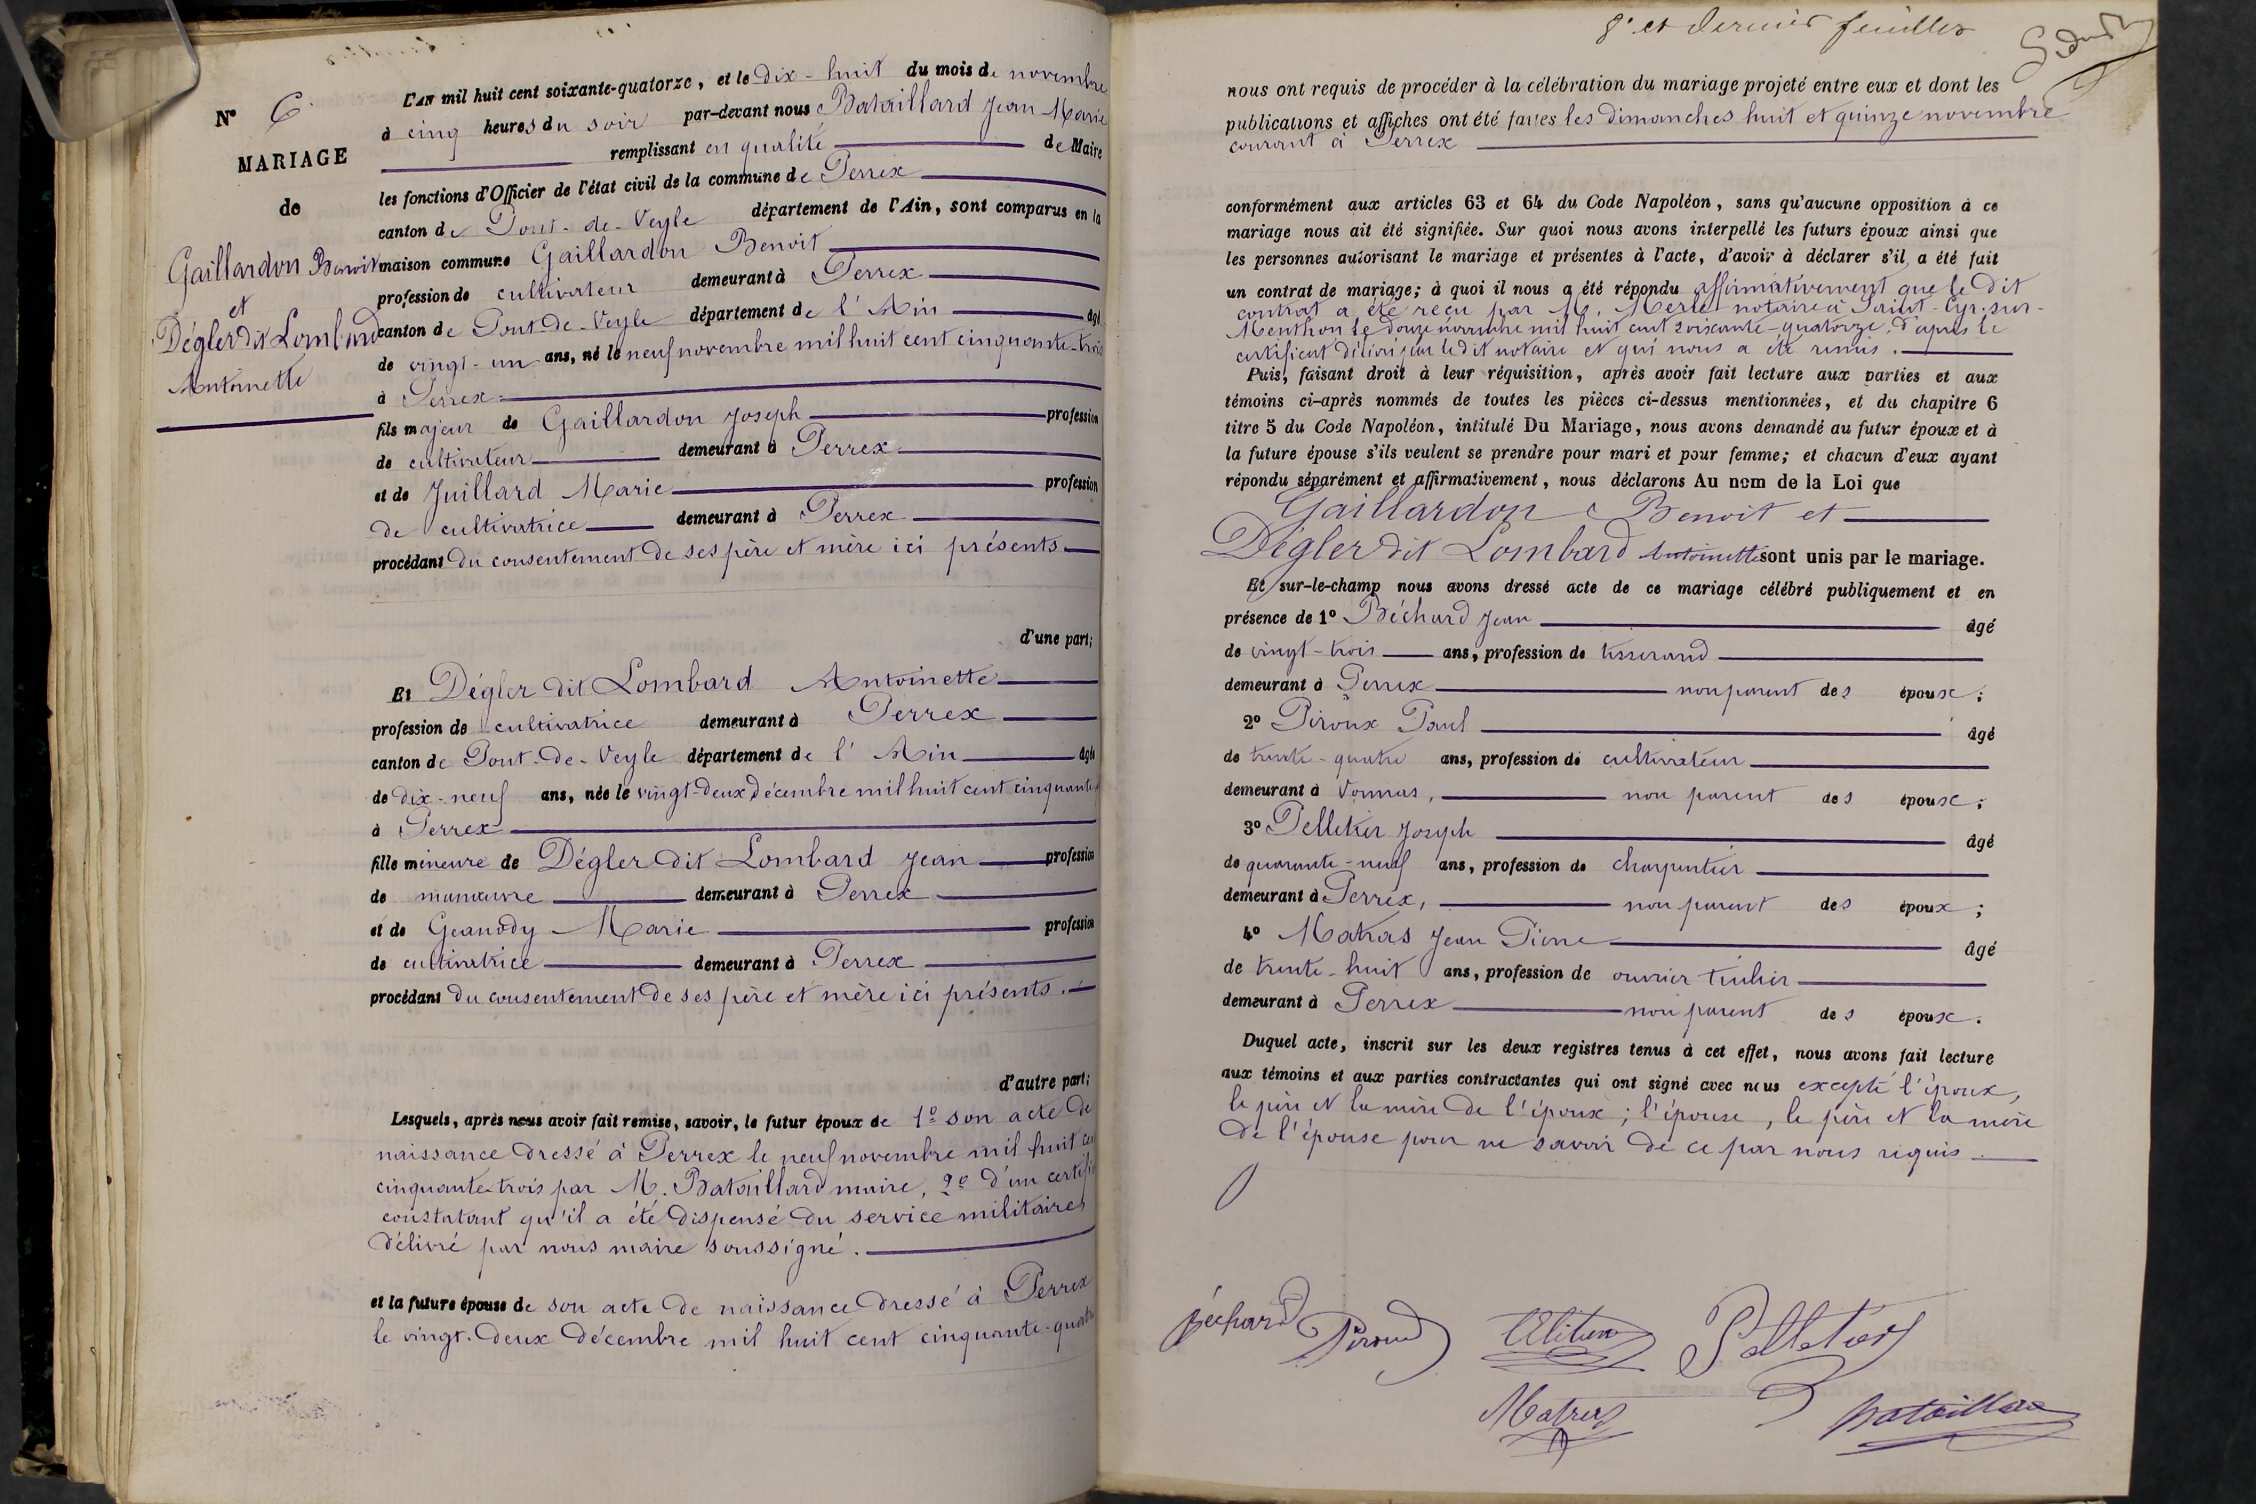 N° 6
MARIAGE
de
Gaillardon Benoit
et
Dégler dit Lombard
Antoinette
L'AN mil huit cent soixante-quatorze, et le dix-huit du mois de novembre
à cinq heures du soir par-devant nous Bataillard Jean Marie
remplissant en qualité de Maire
les fonctions d'Officier de l'état civil de la commune de Perrex
canton de Pont-de-Veyle département de l'Ain, sont comparus en la
maison commune Gaillardon Benoit
profession de cultivateur demeurant à Perrex
canton de Pont-de-Veyle département de l'Ain âgé
de vingt-un ans, né le neuf novembre mil huit cent cinquante-trois
à Perrex
fils majeur de Gaillardon Joseph profession
de cultivateur demeurant à Perrex
et de Juillard Marie profession
de cultivatrice demeurant à Perrex
procédant du consentement de ses père et mère ici présents
d'une part;
Et Dégler dit Lombard Antoinette
profession de cultivatrice demeurant à Perrex
canton de Pont-de-Veyle département de l'Ain âgée
de dix-neuf ans, née le vingt-deux décembre mil huit cent cinquante
à Perrex
fille mineure de Dégler dit Lombard Jean profession
de manœuvre demeurant à Perrex
et de Marie profession
de cultivatrice demeurant à Perrex
procédant du consentement de ses père et mère ici présents.
d'autre part;
Lesquels, après nous avoir fait remise, savoir, le futur époux de 1° son acte de
naissance dressé à Perrex le neuf novembre mil huit cent
cinquante-trois par M. Bataillard maire, 2° d'un certifi
constatant qu'il a été dispensé du service militaire
délivré par nous maire soussigné.
et la future épouse de son acte de naissance dressé à Perrex
le vingt-deux décembre mil huit cent cinquante-quatre
8e et dernier feuillet
nous ont requis de procéder à la célébration du mariage projeté entre eux et dont les
publications et affiches ont été faites les dimanches huit et quinze novembre
courant à Perrex
conformément aux articles 63 et 64 du Code Napoléon, sans qu'aucune opposition à ce
mariage nous ait été signifiée. Sur quoi nous avons interpellé les futurs époux ainsi que
les personnes autorisant le mariage et présentes à l'acte, d'avoir à déclarer s'il a été fait
un contrat de mariage; à quoi il nous a été répondu affirmativement que le dit
contrat a été reçu par Me. Merle notaire à Saint-Cyr-sur-
Menthon le douze novembre mil huit cent soixante-quatorze, d'après le
certificat délivré par le dit notaire et qui nous a été remis.
Puis, faisant droit à leur réquisition, après avoir fait lecture aux parties et aux
témoins ci-après nommés de toutes les pièces ci-dessus mentionnées, et du chapitre 6
titre 5 du Code Napoléon, intitulé Du Mariage, nous avons demandé au futur époux et à
la future épouse s'ils veulent se prendre pour mari et pour femme; et chacun d'eux ayant
répondu séparément et affirmativement, nous déclarons Au nom de la Loi que
Gaillardon Benoit et
Dégler dit Lombard Antoinette sont unis par le mariage.
Et sur-le-champ nous avons dressé acte de ce mariage célébré publiquement et en
présence de 1° Béchard Jean âgé
de vingt-trois ans, profession de tisserand
demeurant à Perrex non parent des époux;
2° Piroux Paul âgé
de trente-quatre ans, profession de cultivateur
demeurant à Vonnas, non parent des époux;
3° Pelletier Joseph âgé
de quarante-neuf ans, profession de charpentier
demeurant à Perrex, non parent des époux;
4° Matras Jean Pierre âgé
de trente-huit ans, profession de ouvrier tuilier
demeurant à Perrex non parent des époux.
Duquel acte, inscrit sur les deux registres tenus à cet effet, nous avons fait lecture
aux témoins et aux parties contractantes qui ont signé avec nous excepté l'époux,
le père et la mère de l'époux; l'épouse, le père et la mère
de l'épouse pour ne savoir de ce par nous requis
Béchard Piroud Pelletier
Matras Bataillard